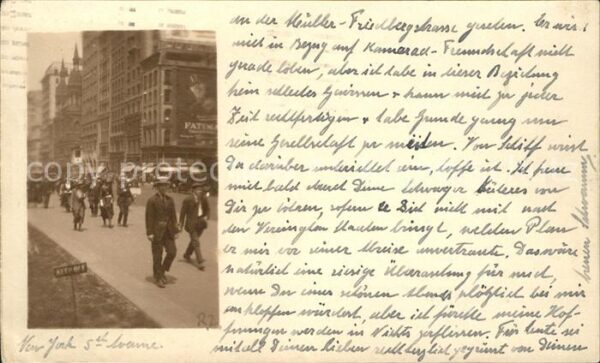 an der Müller-Friedbergstrasse gesehen. Er wird
mich in Bezug auf Kamerad-Freundschaft nicht
gerade loben, aber ich habe in dieser Beziehung
kein schlechtes Gewissen & kann mich zu jeder
Zeit rechtfertigen & habe Gründe genug um
seine Gesellschaft zu meiden. Von Schiff wirst
Du darüber unterrichtet sein, hoffe ich. Ich freue
mich bald durch Deine Schwager näheres von
Dir zu hören, sofern er Dich nicht mit nach
den Vereinigten Staaten bringt, welchen Plan
er mir vor seiner Abreise anvertraute. Das wäre
natürlich eine riesige Überraschung für mich,
wenn Du einer schönen Abends plötzlich bei mir
anklopfen würdest, aber ich fürchte meine Hof-
fnungen werden in Nichts zerfliessen. Für heute sei
mitsamt Deinen Lieben recht herzlich gegrüsst von Deinem
FATIMA
KEEP OFF
New York 5th Avenue.